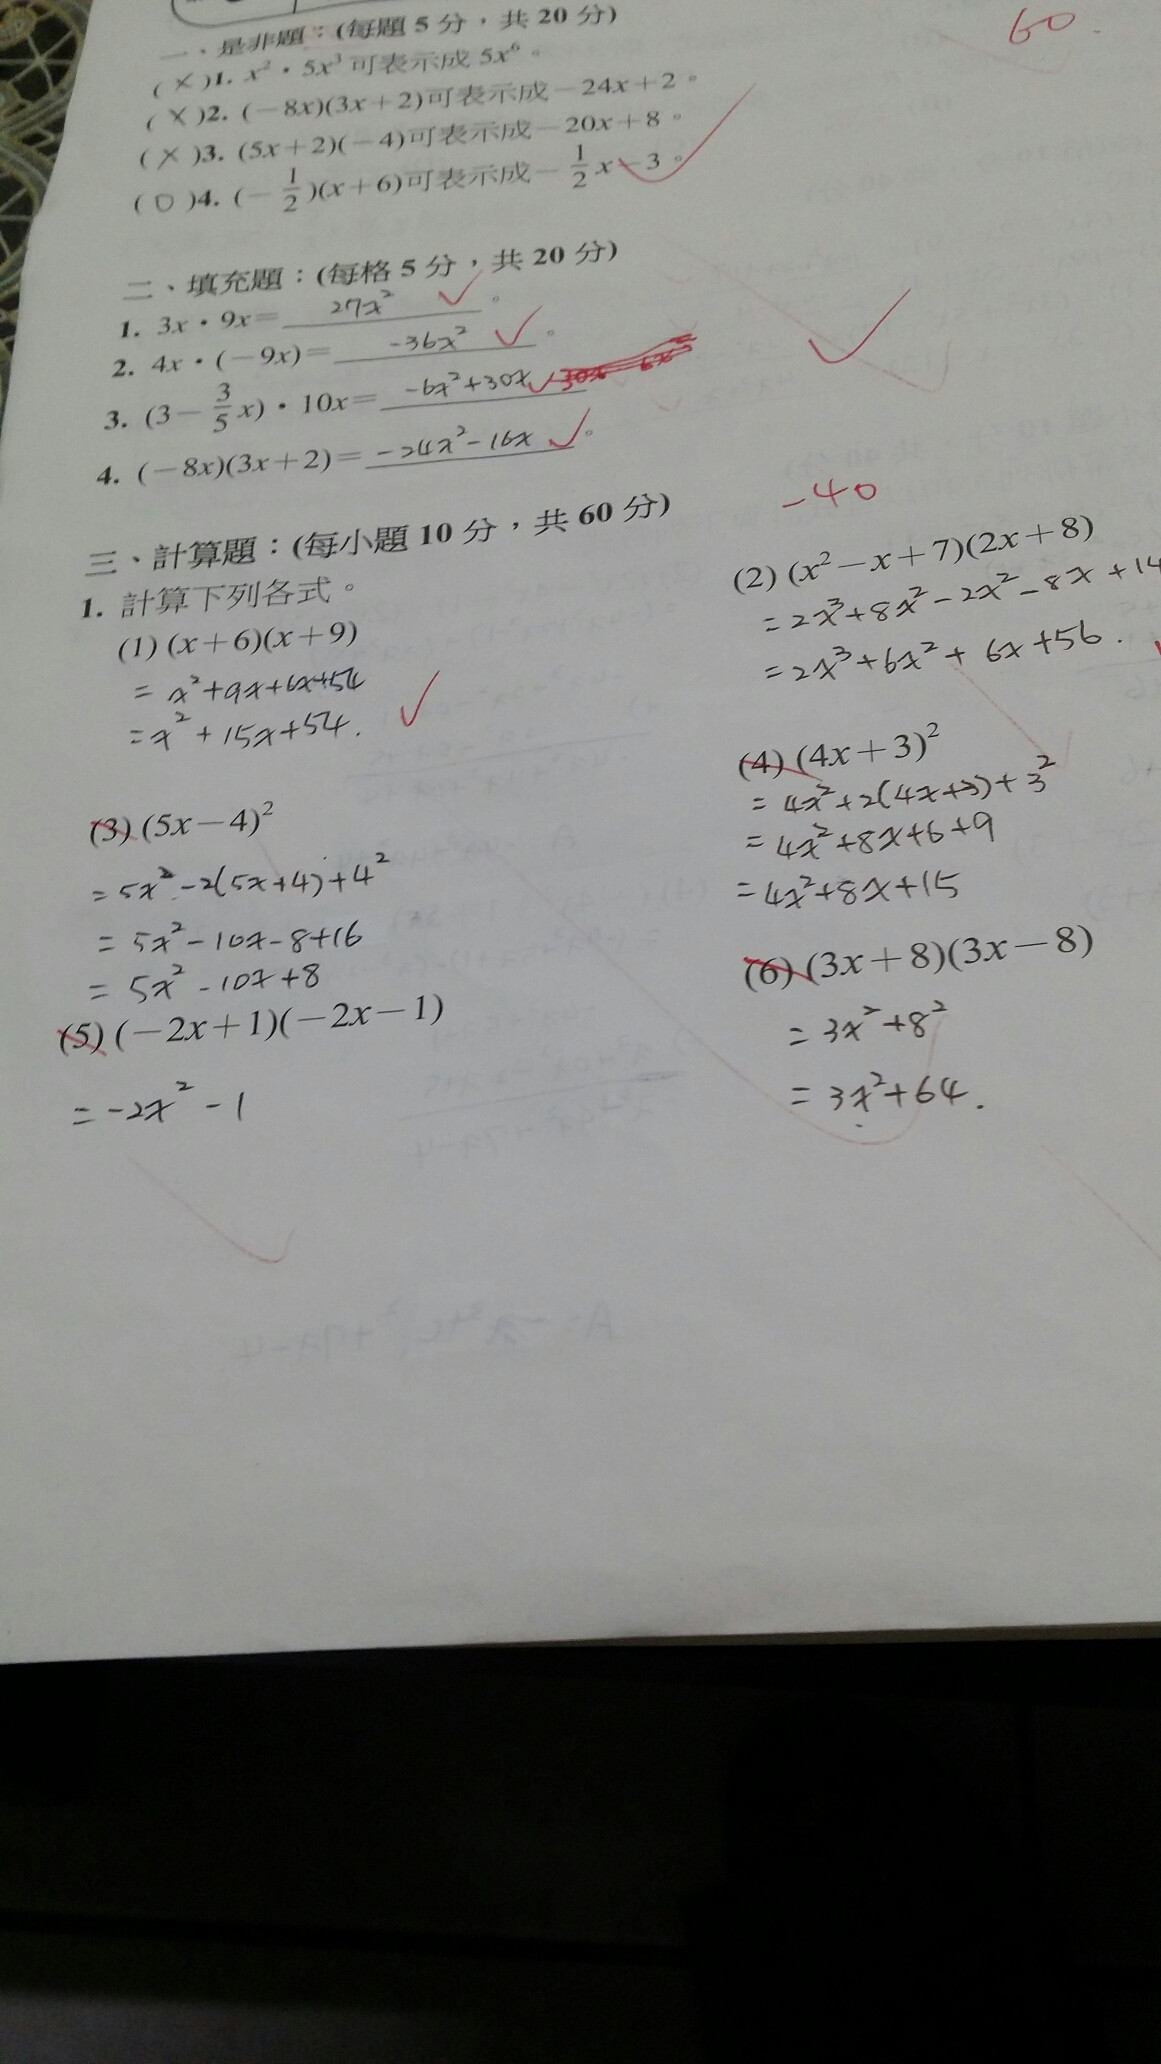 60.
一、是非題：(每題 5 分，共 20 分)
( × )1. x²·5x³可表示成 5x⁶。
( × )2. (－8x)(3x＋2)可表示成－24x＋2。
( × )3. (5x＋2)(－4)可表示成－20x＋8。
( ○ )4. (－1/2)(x＋6)可表示成－1/2x－3。
二、填充題：(每格 5 分，共 20 分)
1. 3x·9x＝27x²。
2. 4x·(－9x)＝-36x²。
3. (3－3/5x)·10x＝-6x²+30x
4. (－8x)(3x＋2)＝-24x²-16x。
-40
三、計算題：(每小題 10 分，共 60 分)
1. 計算下列各式。
(1) (x＋6)(x＋9)
= x²+9x+6x+54
= x²+15x+54.
(2) (x²－x＋7)(2x＋8)
= 2x³+8x²-2x²-8x+14
= 2x³+6x²+6x+56.
(3) (5x－4)²
= 5x²-2(5x+4)+4²
= 5x²-10x-8+16
= 5x²-10x+8
(4) (4x＋3)²
= 4x²+2(4x+3)+3²
= 4x²+8x+6+9
= 4x²+8x+15
(5) (－2x＋1)(－2x－1)
= -2x²-1
(6) (3x＋8)(3x－8)
= 3x²+8²
= 3x²+64.